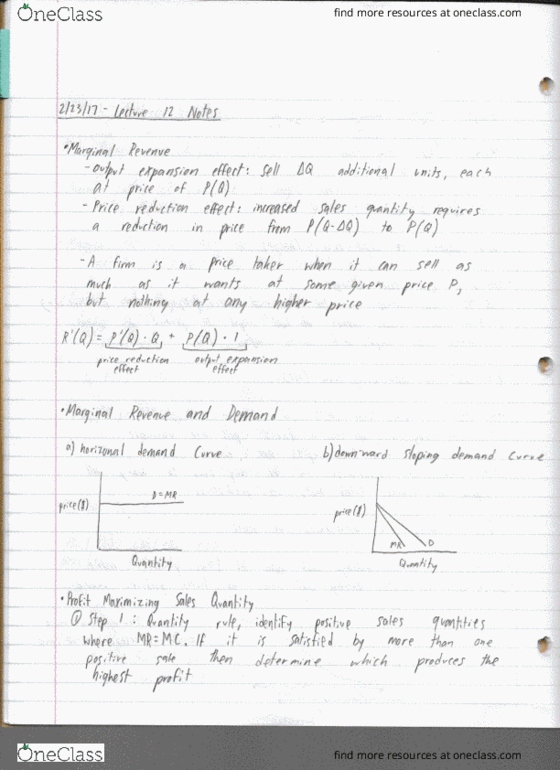 OneClass
find more resources at oneclass.com
2/23/17 - Lecture 12 Notes
• Marginal Revenue
- Output expansion effect: sell ΔQ additional units, each
at price of P(Q)
- Price reduction effect: increased sales quantity requires
a reduction in price from P(Q-ΔQ) to P(Q)
- A firm is a price taker when it can sell as
much as it wants at some given price P,
but nothing at any higher price
R'(Q) = P'(Q) · Q + P(Q) · 1
price reduction effect
output expansion effect
• Marginal Revenue and Demand
a) horizonal demand curve
b) downward sloping demand curve
price($)
D=MR
Quantity
price($)
MR
D
Quantity
• Profit Maximizing Sales Quantity
① Step 1: Quantity rule, identify positive sales quantities
where MR=MC. If it is satisfied by more than one
positive sale then determine which produces the
highest profit
OneClass
find more resources at oneclass.com